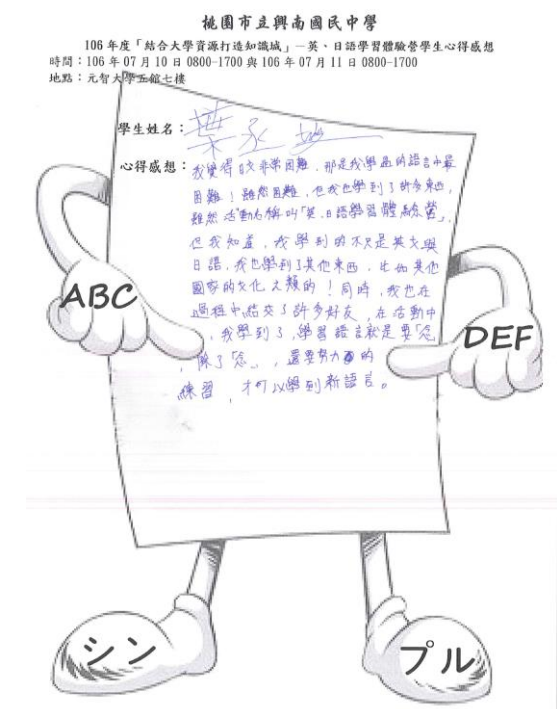 桃園市立興南國民中學
106 年度「結合大學資源打造知識城」—英、日語學習體驗營學生心得感想
時間：106 年 07 月 10 日 0800-1700 與 106 年 07 月 11 日 0800-1700
地點：元智大學五館七樓
學生姓名：葉
心得感想：我覺得日文非常困難，那是我學過的語言中最
困難！雖然困難，但我也學到了許多東西，
雖然活動名稱叫「英、日語學習體驗營」，
但我知道，我學到的不只是英文與
日語，我也學到了其他東西，比如其他
國家的文化之類的！同時，我也在
過程中結交了許多好友，在活動中
，我學到了，學習語言就是要「念」
，除了「念」，還要努力的
練習，才可以學到新語言。
ABC
DEF
シン
プル